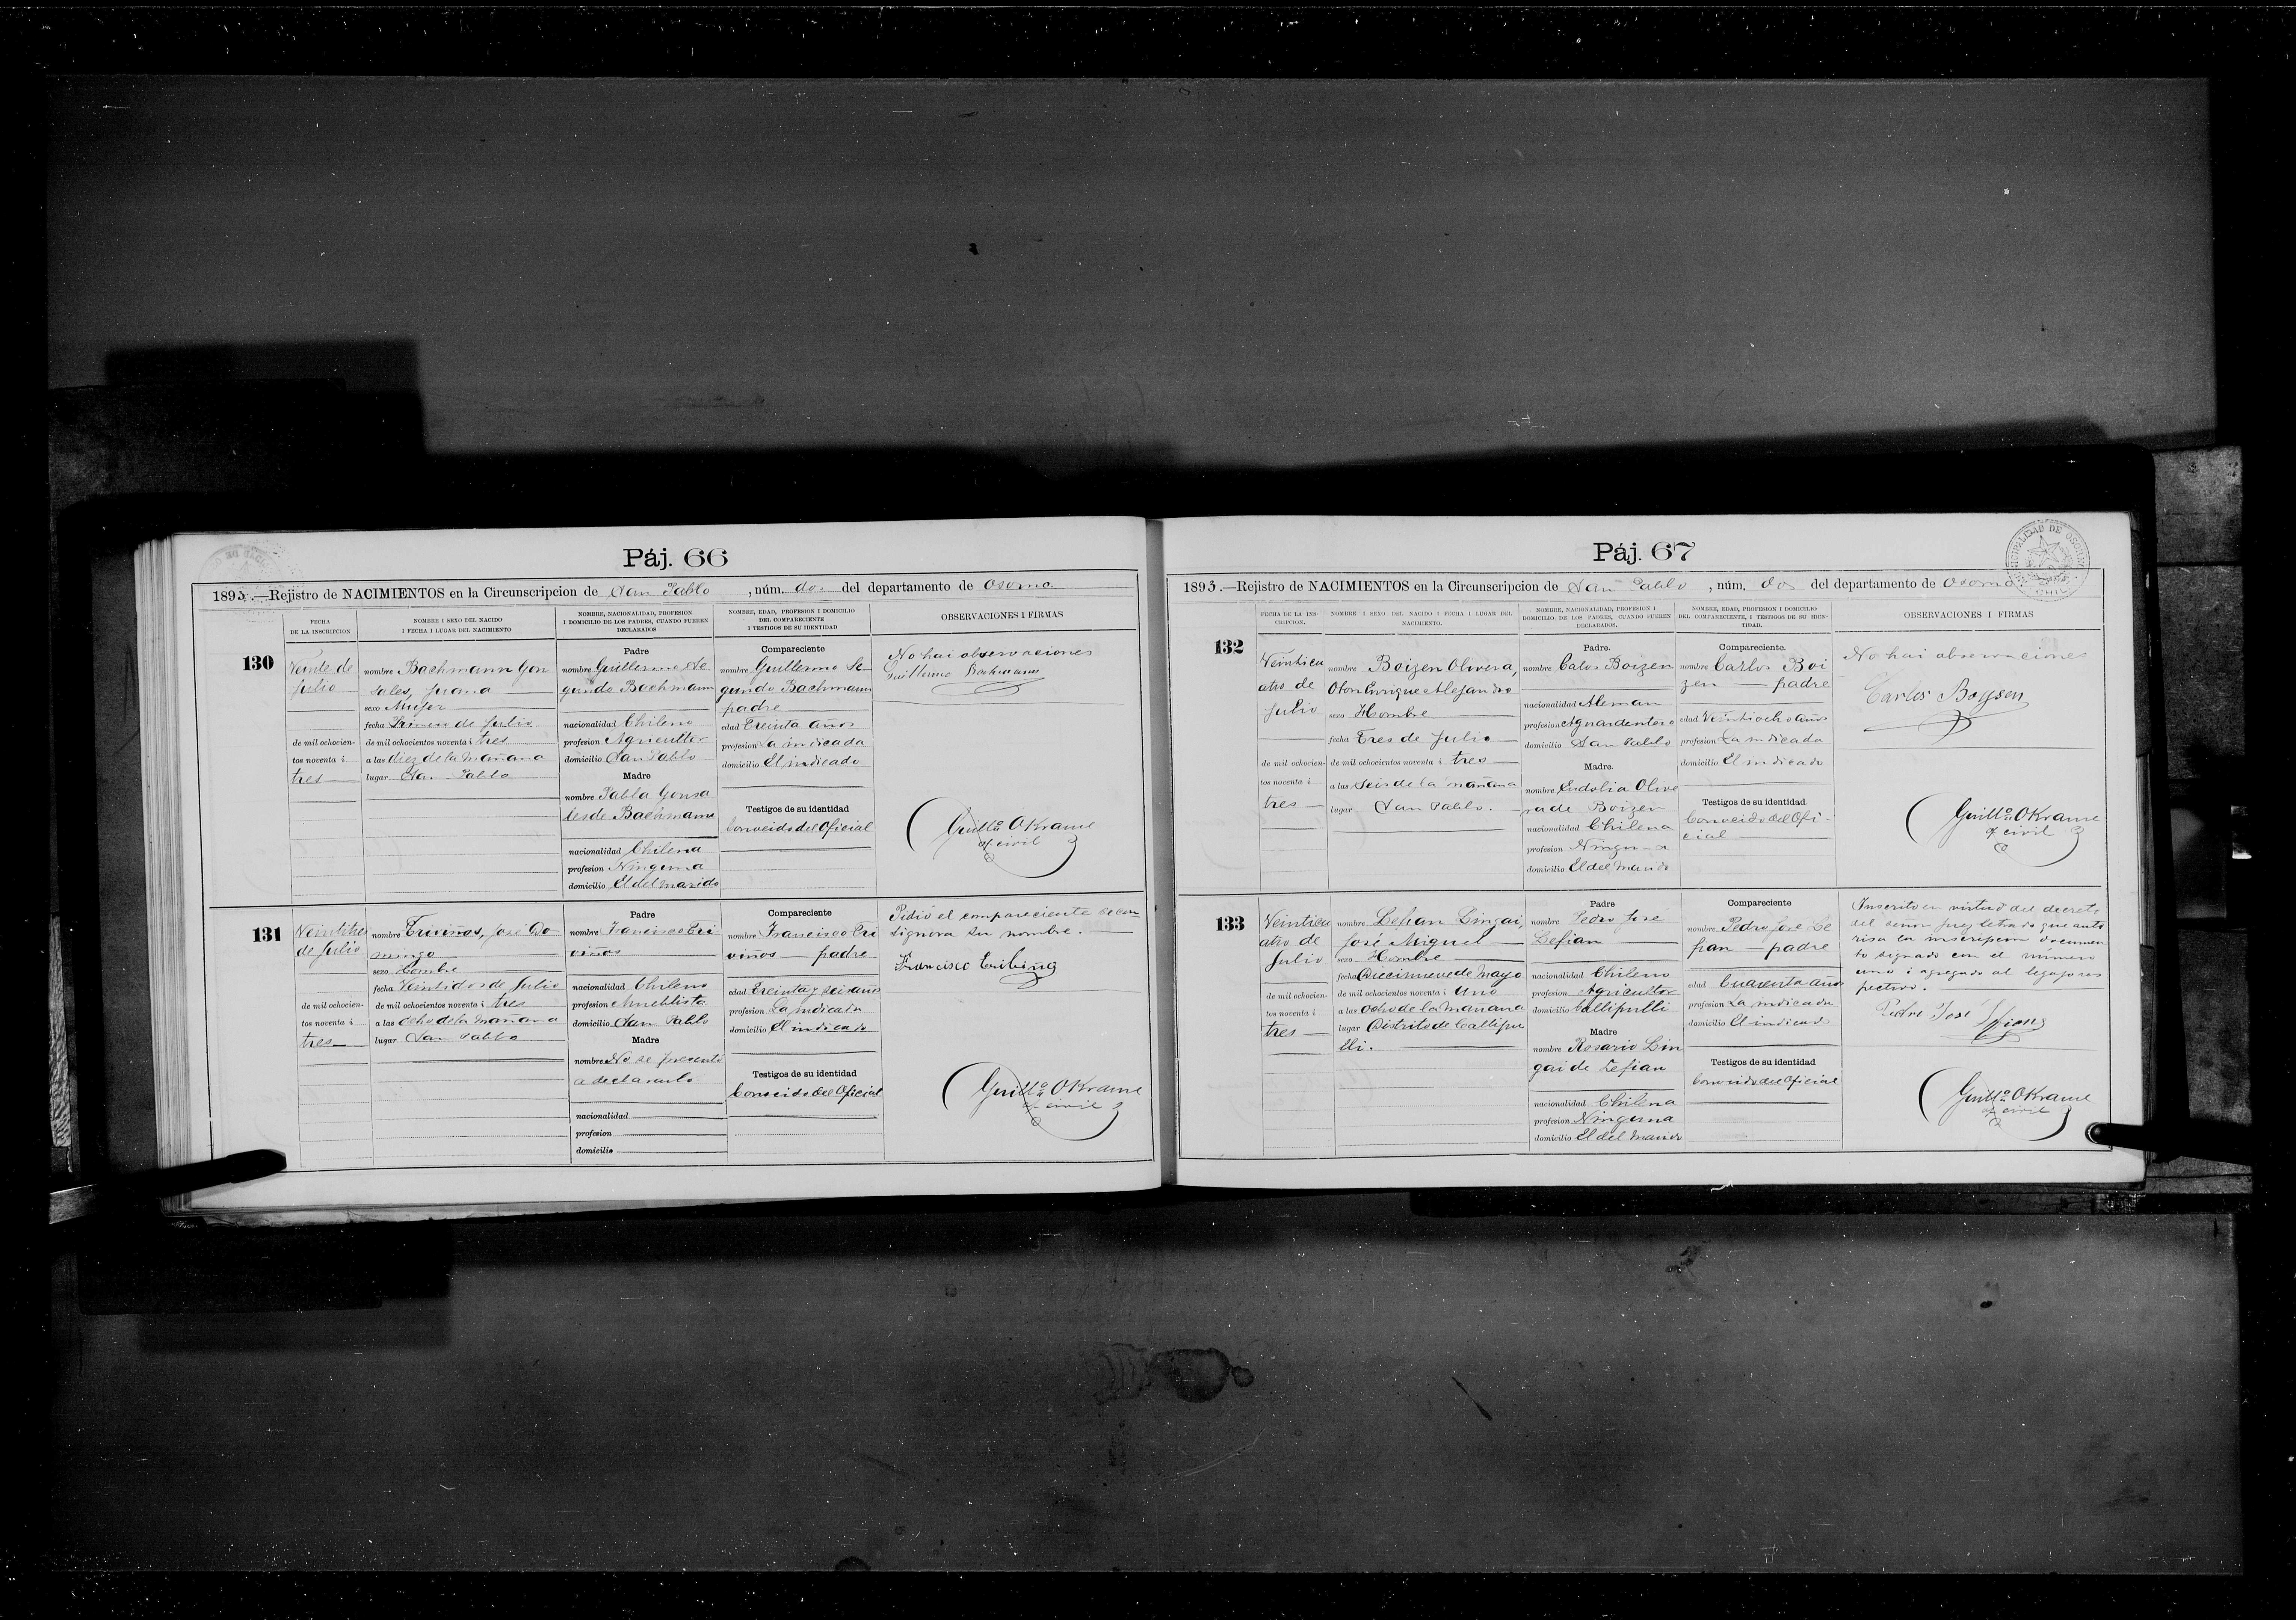 Páj. 66
1893.—Rejistro de NACIMIENTOS en la Circunscripcion de San Pablo, núm. dos del departamento de Osorno.
FECHA
DE LA INSCRIPCION
NOMBRE I SEXO DEL NACIDO
I FECHA I LUGAR DEL NACIMIENTO
NOMBRE, NACIONALIDAD, PROFESION
I DOMICILIO DE LOS PADRES, CUANDO FUEREN
DECLARADOS
NOMBRE, EDAD, PROFESION I DOMICILIO
DEL COMPARECIENTE
I TESTIGOS DE SU IDENTIDAD
OBSERVACIONES I FIRMAS
130
Veinte de
Julio
de mil ochocien-
tos noventa i
tres
nombre Bachmann Gon
sales, Juana
sexo Mujer
fecha Primero de Julio
de mil ochocientos noventa i tres
a las diez de la mañana
lugar San Pablo
Padre
nombre Guillermo Se
gundo Bachmann
nacionalidad Chileno
profesion Agricultor
domicilio San Pablo
Madre
nombre Pabla Gonsa
les de Bachmann
nacionalidad Chilena
profesion Ninguna
domicilio El del marido
Compareciente
nombre Guillermo Se
gundo Bachmann
padre
edad Treinta años
profesion La indicada
domicilio El indicado
Testigos de su identidad
Conocido del Oficial
No hai observaciones
Guillermo Bachmann
Guillo. O Krame
of. civil
131
Veintitres
de Julio
de mil ochocien-
tos noventa i
tres
nombre Triviños, José Do-
mingo
sexo Hombre
fecha Veintidos de Julio
de mil ochocientos noventa i tres
a las ocho de la mañana
lugar San Pablo
Padre
nombre Francisco Tri
viños
nacionalidad Chileno
profesion Mueblista
domicilio San Pablo
Madre
nombre No se presentó
a declararlo
nacionalidad
profesion
domicilio
Compareciente
nombre Francisco Tri
viños padre
edad Treinta y seis años
profesion La indicada
domicilio El indicado
Testigos de su identidad
Conocido del Oficial
Pidió el compareciente se con
signara su nombre.
Francisco Tribiño
Guillo. O Krame
of. civil
Páj. 67
1893.—Rejistro de NACIMIENTOS en la Circunscripcion de San Pablo, núm. dos del departamento de Osorno
MUNICIPALIDAD DE OSORNO
CHILE
FECHA DE LA INS-
CRIPCION.
NOMBRE I SEXO DEL NACIDO I FECHA I LUGAR DEL
NACIMIENTO.
NOMBRE, NACIONALIDAD, PROFESION I
DOMICILIO DE LOS PADRES, CUANDO FUEREN
DECLARADOS.
NOMBRE, EDAD, PROFESION I DOMICILIO
DEL COMPARECIENTE, I TESTIGOS DE SU IDEN-
TIDAD.
OBSERVACIONES I FIRMAS
132
Veinticu
atro de
Julio
de mil ochocien-
tos noventa i
tres
nombre Boizen Olivera,
Oton Enrique Alejandro
sexo Hombre
fecha Tres de Julio
de mil ochocientos noventa i tres
a las Seis de la mañana
lugar San Pablo.
Padre.
nombre Calos Boizen
nacionalidad Aleman
profesion Aguardentero
domicilio San Pablo
Madre.
nombre Ludolia Olive
ra de Boizen
nacionalidad Chilena
profesion Ninguna
domicilio El del marido
Compareciente.
nombre Carlos Boi
zen padre
edad Veintiocho años
profesion La indicada
domicilio El indicado
Testigos de su identidad.
Conocido del Ofi-
cial
No hai observaciones
Carlos Boysen
Guillo. O Krame
of civil
133
Veinticu
atro de
Julio
de mil ochocien-
tos noventa i
tres
nombre Lefian Lingai,
José Miguel
sexo Hombre
fecha Diecinueve de Mayo
de mil ochocientos noventa i uno
a las ocho de la mañana
lugar Distrito de Callipu
lli.
Padre
nombre Pedro José
Lefian
nacionalidad Chileno
profesion Agricultor
domicilio Callipulli
Madre
nombre Rosario Lin
gai de Lefian
nacionalidad Chilena
profesion Ninguna
domicilio El del marido
Compareciente
nombre Pedro José Le
fian padre
edad Cuarenta años
profesion La indicada
domicilio El indicado
Testigos de su identidad
Conocido del Oficial
Inscrito en virtud del decreto
del señor Juez Letrado que auto
risa la inscripcion documen
to signado con el número
uno i agregado al legajo res
pectivo.
Pedro José Lefian
Guillo. O Krame
of civil